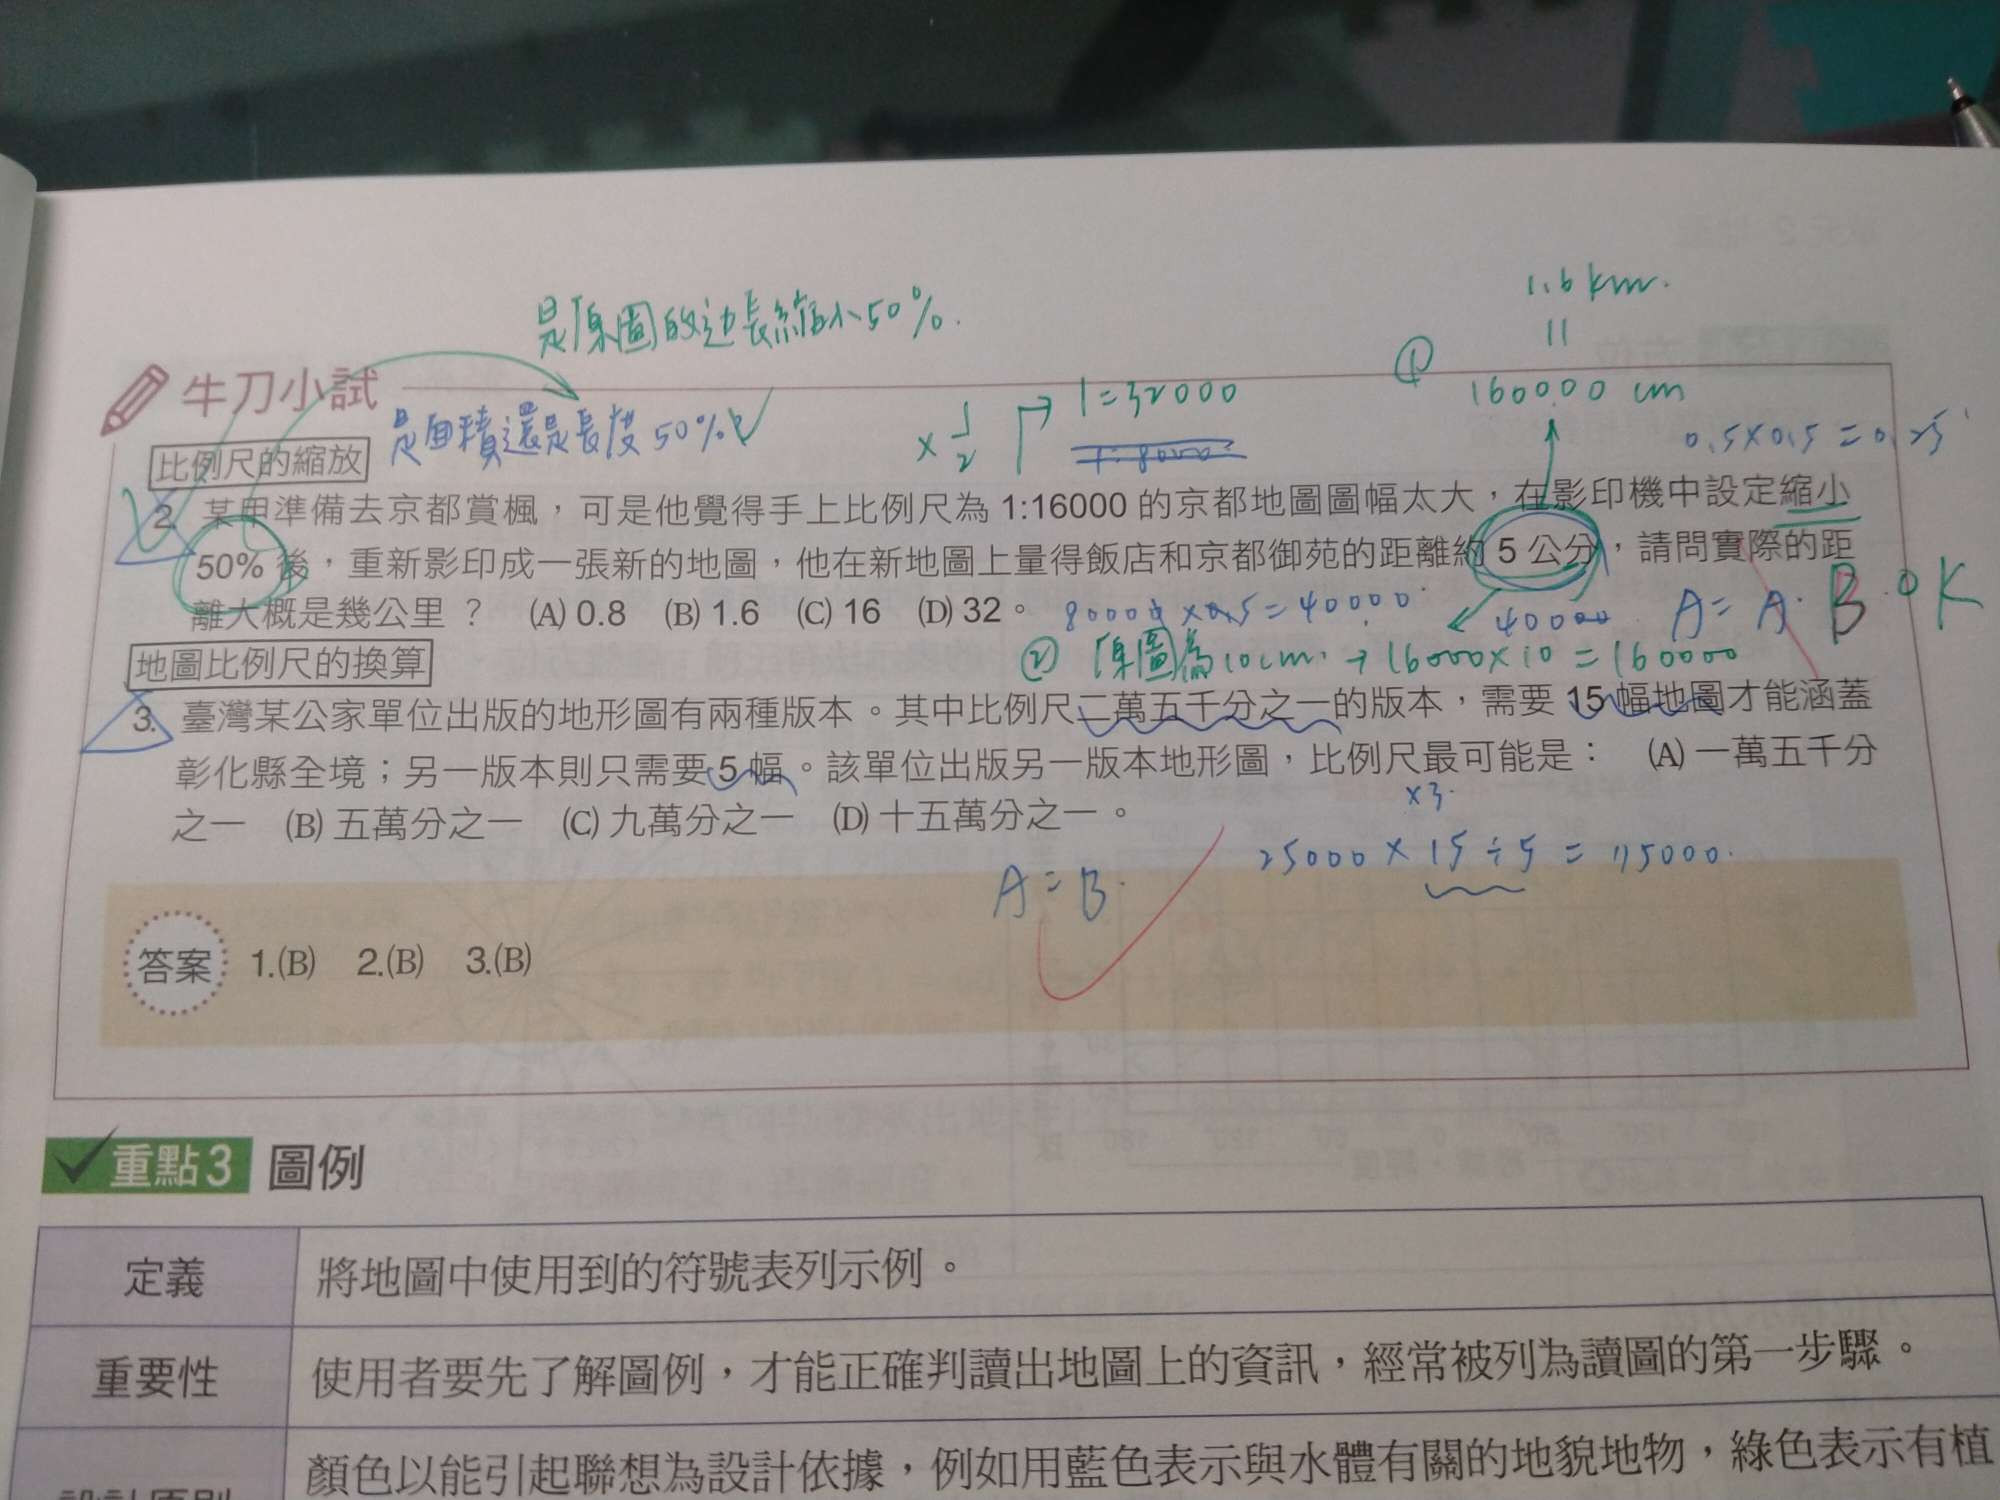 是原圖的边長縮小50%.
1.6 km.
||
① 160000 cm
牛刀小試
是面積還是長度50%?
× 1/2
1=32000
0.5×0.5=0.25
比例尺的縮放
2. 某甲準備去京都賞楓，可是他覺得手上比例尺為 1:16000 的京都地圖圖幅太大，在影印機中設定縮小
50% 後，重新影印成一張新的地圖，他在新地圖上量得飯店和京都御苑的距離約 5 公分，請問實際的距
離大概是幾公里？ (A) 0.8 (B) 1.6 (C) 16 (D) 32。
80000×0.5=40000
40000
A=A. B. OK
② 原圖為10cm. → 16000×10=160000
地圖比例尺的換算
3. 臺灣某公家單位出版的地形圖有兩種版本。其中比例尺二萬五千分之一的版本，需要 15 幅地圖才能涵蓋
彰化縣全境；另一版本則只需要 5 幅。該單位出版另一版本地形圖，比例尺最可能是： (A) 一萬五千分
之一 (B) 五萬分之一 (C) 九萬分之一 (D) 十五萬分之一。
×3.
25000×15÷5=75000.
A=B.
答案 1.(B) 2.(B) 3.(B)
重點3 圖例
定義 將地圖中使用到的符號表列示例。
重要性 使用者要先了解圖例，才能正確判讀出地圖上的資訊，經常被列為讀圖的第一步驟。
顏色以能引起聯想為設計依據，例如用藍色表示與水體有關的地貌地物，綠色表示有植